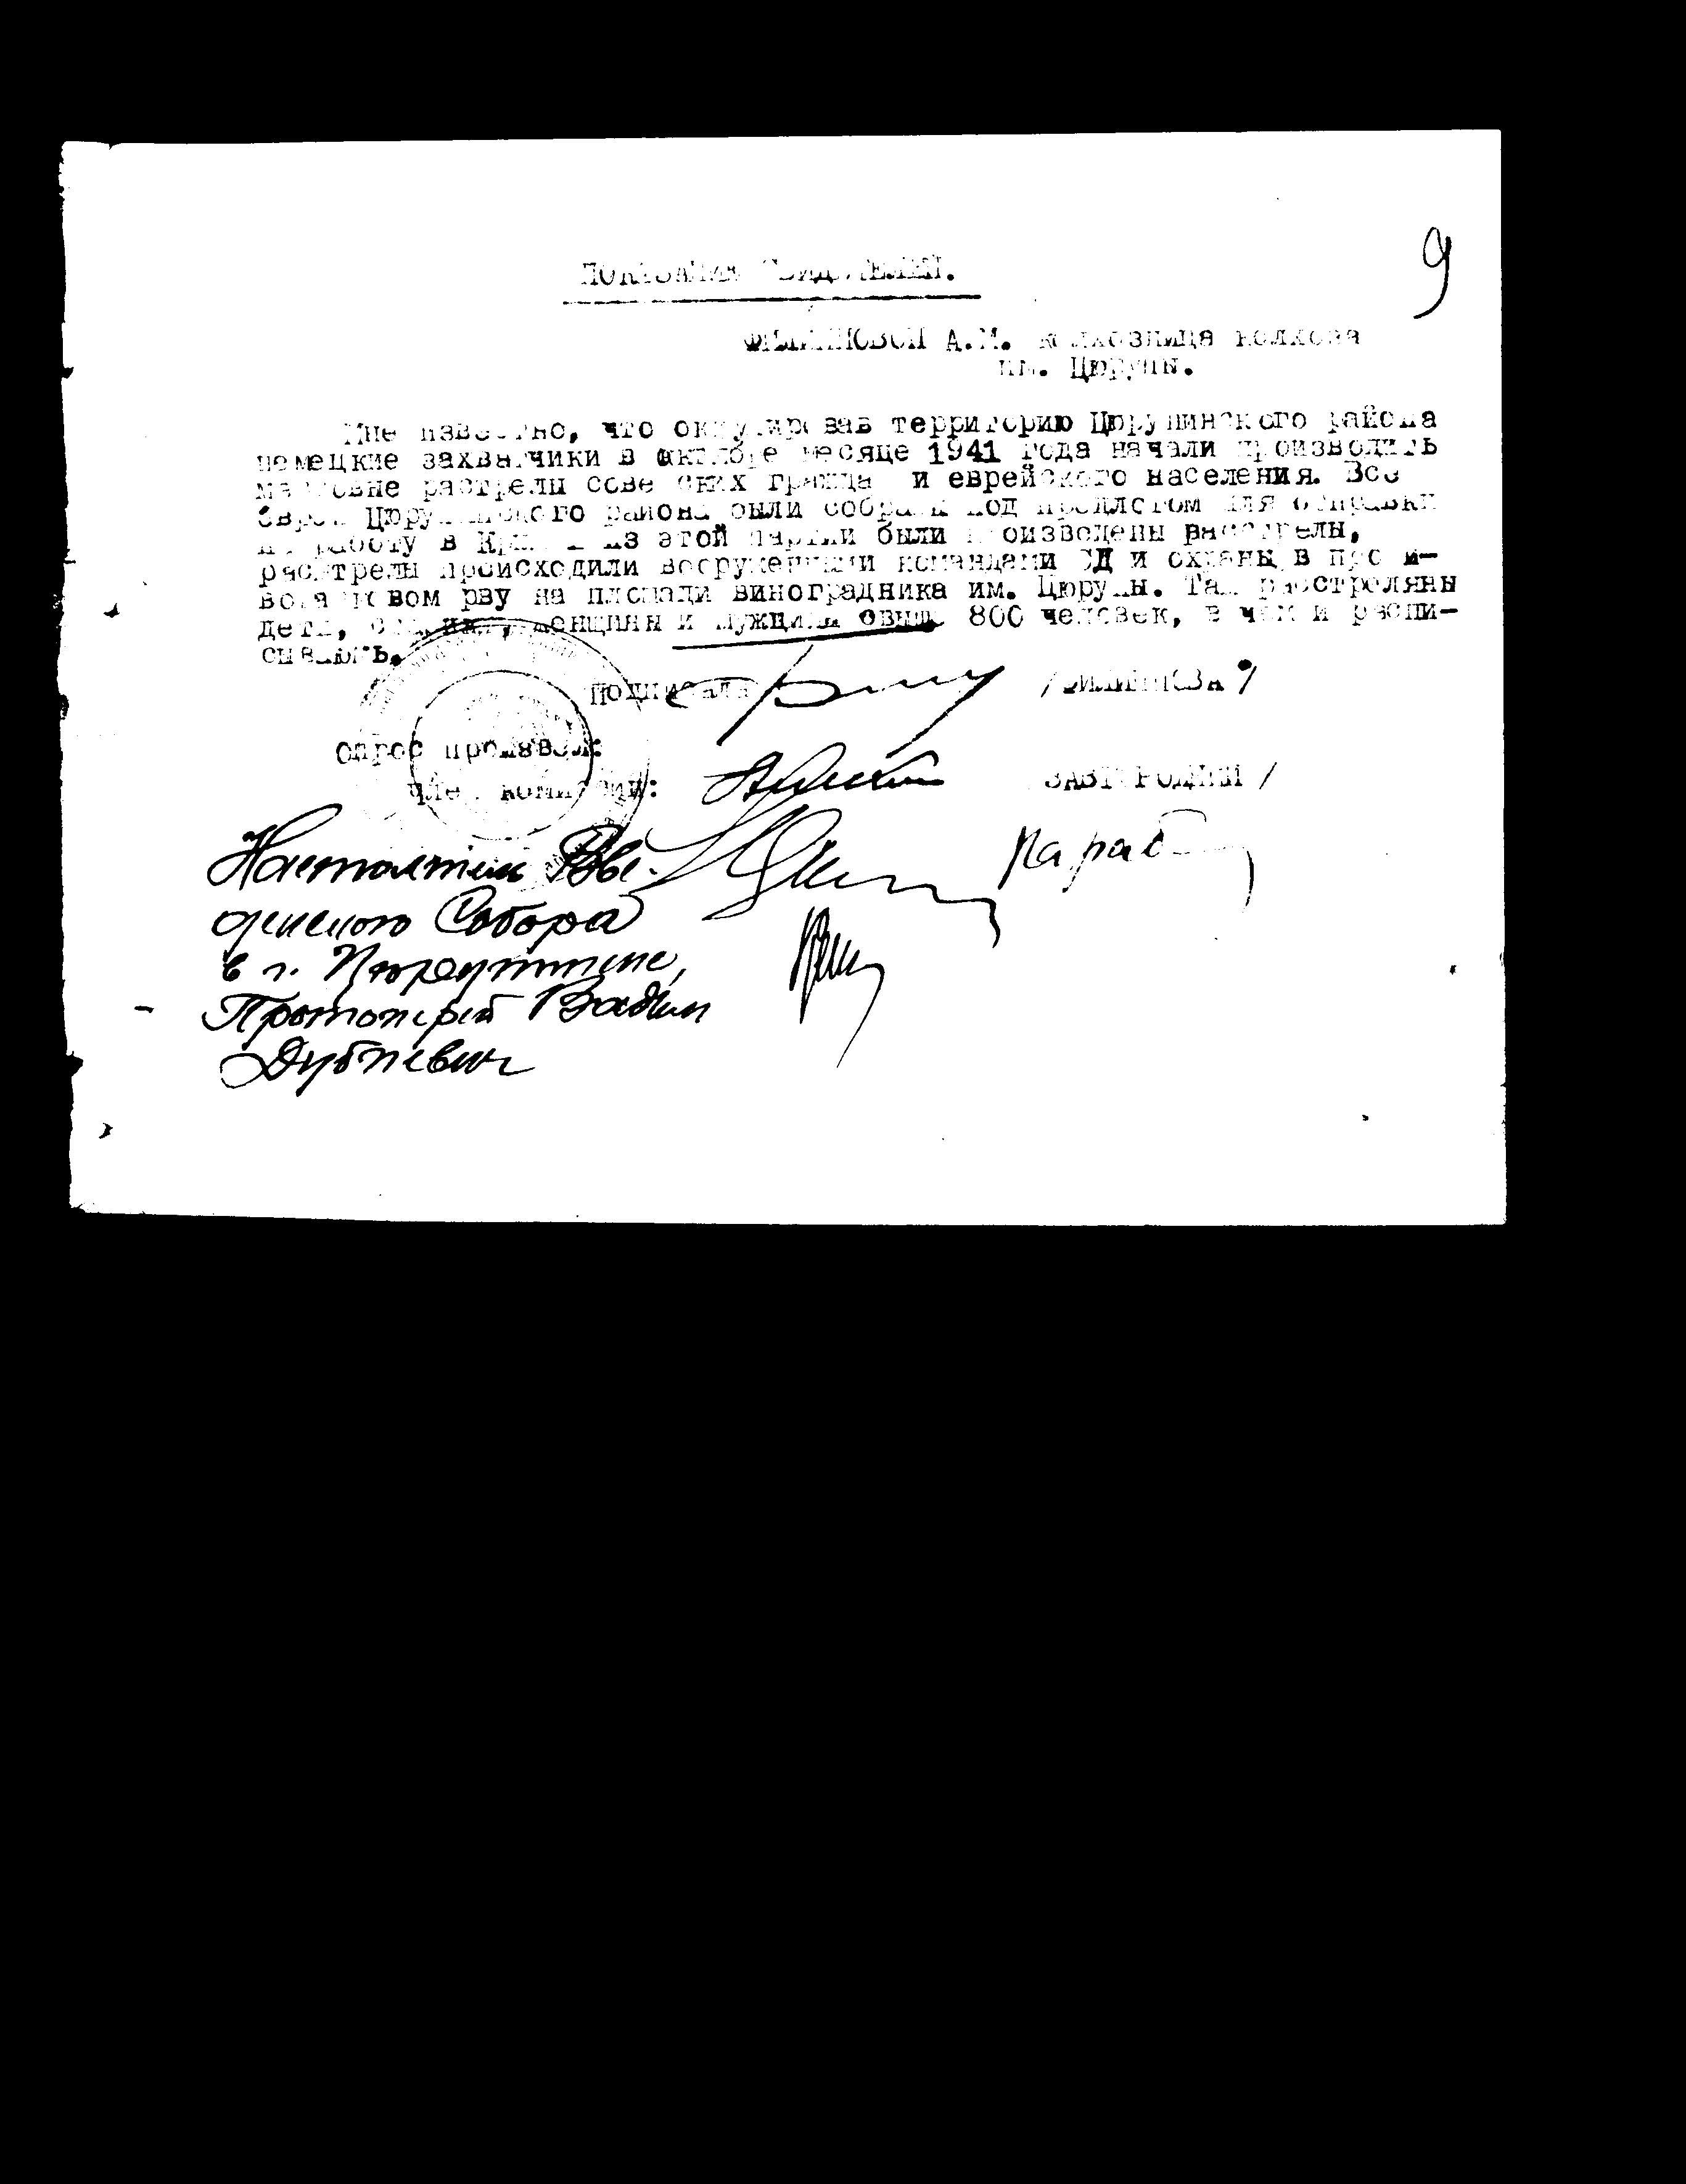 9
ПОКАЗАНИЯ СВИДЕТЕЛЕЙ.
ФИЛИППОВОЙ А.М. колхозница колхоза
им. Цюрупы.
Мне известно, что оккупировав территорию Цюрупинского района
немецкие захватчики в октябре месяце 1941 года начали производить
массовые растрелы советских граждан и еврейского населения. Все
евреи Цюрупинского района были собраны под предлогом для отправки
на работу в Крым из этой партии были произведены расстрелы,
расстрелы происходили вооруженными командами СД и охраны в проти-
вотанковом рву на площади виноградника им. Цюрупы. Там расстреляны
дети, старики, женщины и мужчины свыше 800 человек, в чем и распи-
сываюсь.
Подписала /ФИЛИППОВА/
Опрос произвел:
Член комиссии: ЗАВГОРОДНИЙ /
Настоятель Вве-
денского Собора
в г. Цюрупинске,
Протоиерей